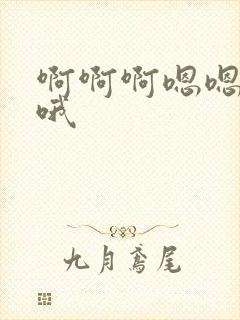 啊啊啊嗯嗯
哦
九月鸢尾